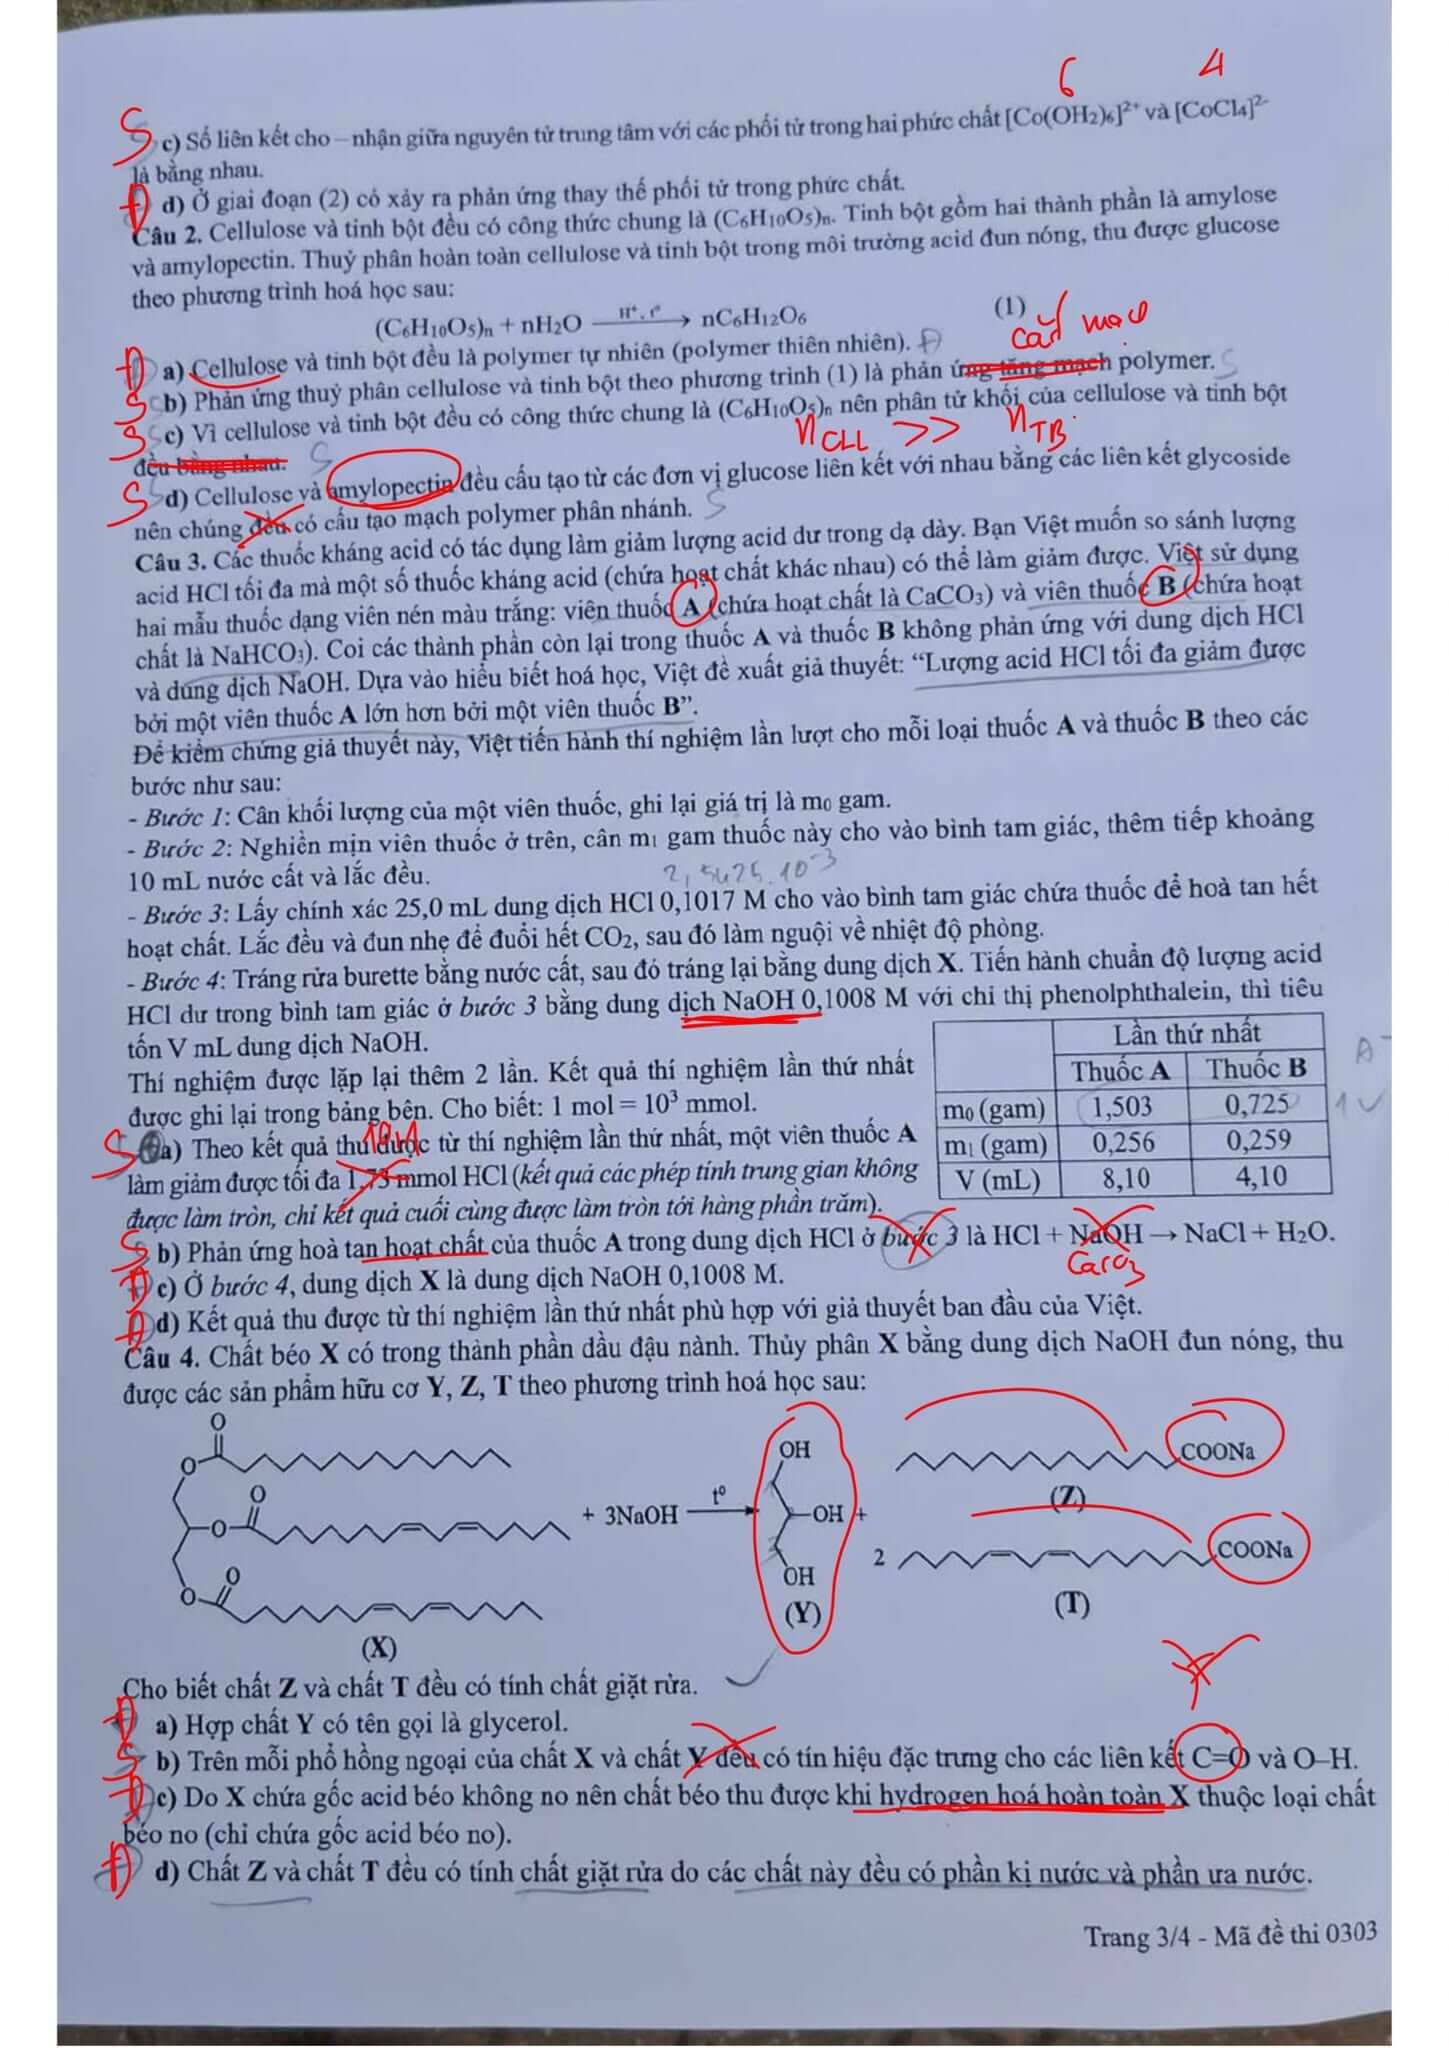 6 4
S c) Số liên kết cho – nhận giữa nguyên tử trung tâm với các phối tử trong hai phức chất [Co(OH₂)₆]²⁺ và [CoCl₄]²⁻
là bằng nhau.
Đ d) Ở giai đoạn (2) có xảy ra phản ứng thay thế phối tử trong phức chất.
Câu 2. Cellulose và tinh bột đều có công thức chung là (C₆H₁₀O₅)ₙ. Tinh bột gồm hai thành phần là amylose
và amylopectin. Thuỷ phân hoàn toàn cellulose và tinh bột trong môi trường acid đun nóng, thu được glucose
theo phương trình hoá học sau:
(C₆H₁₀O₅)ₙ + nH₂O —H⁺, t°→ nC₆H₁₂O₆ (1)
cắt mạch
Đ a) Cellulose và tinh bột đều là polymer tự nhiên (polymer thiên nhiên). Đ
S b) Phản ứng thuỷ phân cellulose và tinh bột theo phương trình (1) là phản ứng tăng mạch polymer. S
S c) Vì cellulose và tinh bột đều có công thức chung là (C₆H₁₀O₅)ₙ nên phân tử khối của cellulose và tinh bột
đều bằng nhau. S nCLL >> nTB
S d) Cellulose và amylopectin đều cấu tạo từ các đơn vị glucose liên kết với nhau bằng các liên kết glycoside
nên chúng đều có cấu tạo mạch polymer phân nhánh. S
Câu 3. Các thuốc kháng acid có tác dụng làm giảm lượng acid dư trong dạ dày. Bạn Việt muốn so sánh lượng
acid HCl tối đa mà một số thuốc kháng acid (chứa hoạt chất khác nhau) có thể làm giảm được. Việt sử dụng
hai mẫu thuốc dạng viên nén màu trắng: viên thuốc A (chứa hoạt chất là CaCO₃) và viên thuốc B (chứa hoạt
chất là NaHCO₃). Coi các thành phần còn lại trong thuốc A và thuốc B không phản ứng với dung dịch HCl
và dung dịch NaOH. Dựa vào hiểu biết hoá học, Việt đề xuất giả thuyết: “Lượng acid HCl tối đa giảm được
bởi một viên thuốc A lớn hơn bởi một viên thuốc B”.
Để kiểm chứng giả thuyết này, Việt tiến hành thí nghiệm lần lượt cho mỗi loại thuốc A và thuốc B theo các
bước như sau:
- Bước 1: Cân khối lượng của một viên thuốc, ghi lại giá trị là m₀ gam.
- Bước 2: Nghiền mịn viên thuốc ở trên, cân m₁ gam thuốc này cho vào bình tam giác, thêm tiếp khoảng
10 mL nước cất và lắc đều. 2,5425.10⁻³
- Bước 3: Lấy chính xác 25,0 mL dung dịch HCl 0,1017 M cho vào bình tam giác chứa thuốc để hoà tan hết
hoạt chất. Lắc đều và đun nhẹ để đuổi hết CO₂, sau đó làm nguội về nhiệt độ phòng.
- Bước 4: Tráng rửa burette bằng nước cất, sau đó tráng lại bằng dung dịch X. Tiến hành chuẩn độ lượng acid
HCl dư trong bình tam giác ở bước 3 bằng dung dịch NaOH 0,1008 M với chỉ thị phenolphthalein, thì tiêu
tốn V mL dung dịch NaOH.
Thí nghiệm được lặp lại thêm 2 lần. Kết quả thí nghiệm lần thứ nhất
được ghi lại trong bảng bên. Cho biết: 1 mol = 10³ mmol.
Lần thứ nhất
Thuốc A Thuốc B
m₀ (gam) 1,503 0,725
m₁ (gam) 0,256 0,259
V (mL) 8,10 4,10
S a) Theo kết quả thu được từ thí nghiệm lần thứ nhất, một viên thuốc A
làm giảm được tối đa 1,73 mmol HCl (kết quả các phép tính trung gian không
được làm tròn, chỉ kết quả cuối cùng được làm tròn tới hàng phần trăm).
S b) Phản ứng hoà tan hoạt chất của thuốc A trong dung dịch HCl ở bước 3 là HCl + NaOH → NaCl + H₂O.
CaCO₃
Đ c) Ở bước 4, dung dịch X là dung dịch NaOH 0,1008 M.
Đ d) Kết quả thu được từ thí nghiệm lần thứ nhất phù hợp với giả thuyết ban đầu của Việt.
Câu 4. Chất béo X có trong thành phần dầu đậu nành. Thủy phân X bằng dung dịch NaOH đun nóng, thu
được các sản phẩm hữu cơ Y, Z, T theo phương trình hoá học sau:
O
O
O
O
O
O
(X)
+ 3NaOH t°
OH
OH
OH
(Y)
+
COONa
(Z)
2
COONa
(T)
Cho biết chất Z và chất T đều có tính chất giặt rửa.
Đ a) Hợp chất Y có tên gọi là glycerol.
S b) Trên mỗi phổ hồng ngoại của chất X và chất Y đều có tín hiệu đặc trưng cho các liên kết C=O và O–H.
Đ c) Do X chứa gốc acid béo không no nên chất béo thu được khi hydrogen hoá hoàn toàn X thuộc loại chất
béo no (chỉ chứa gốc acid béo no).
Đ d) Chất Z và chất T đều có tính chất giặt rửa do các chất này đều có phần kị nước và phần ưa nước.
Trang 3/4 - Mã đề thi 0303